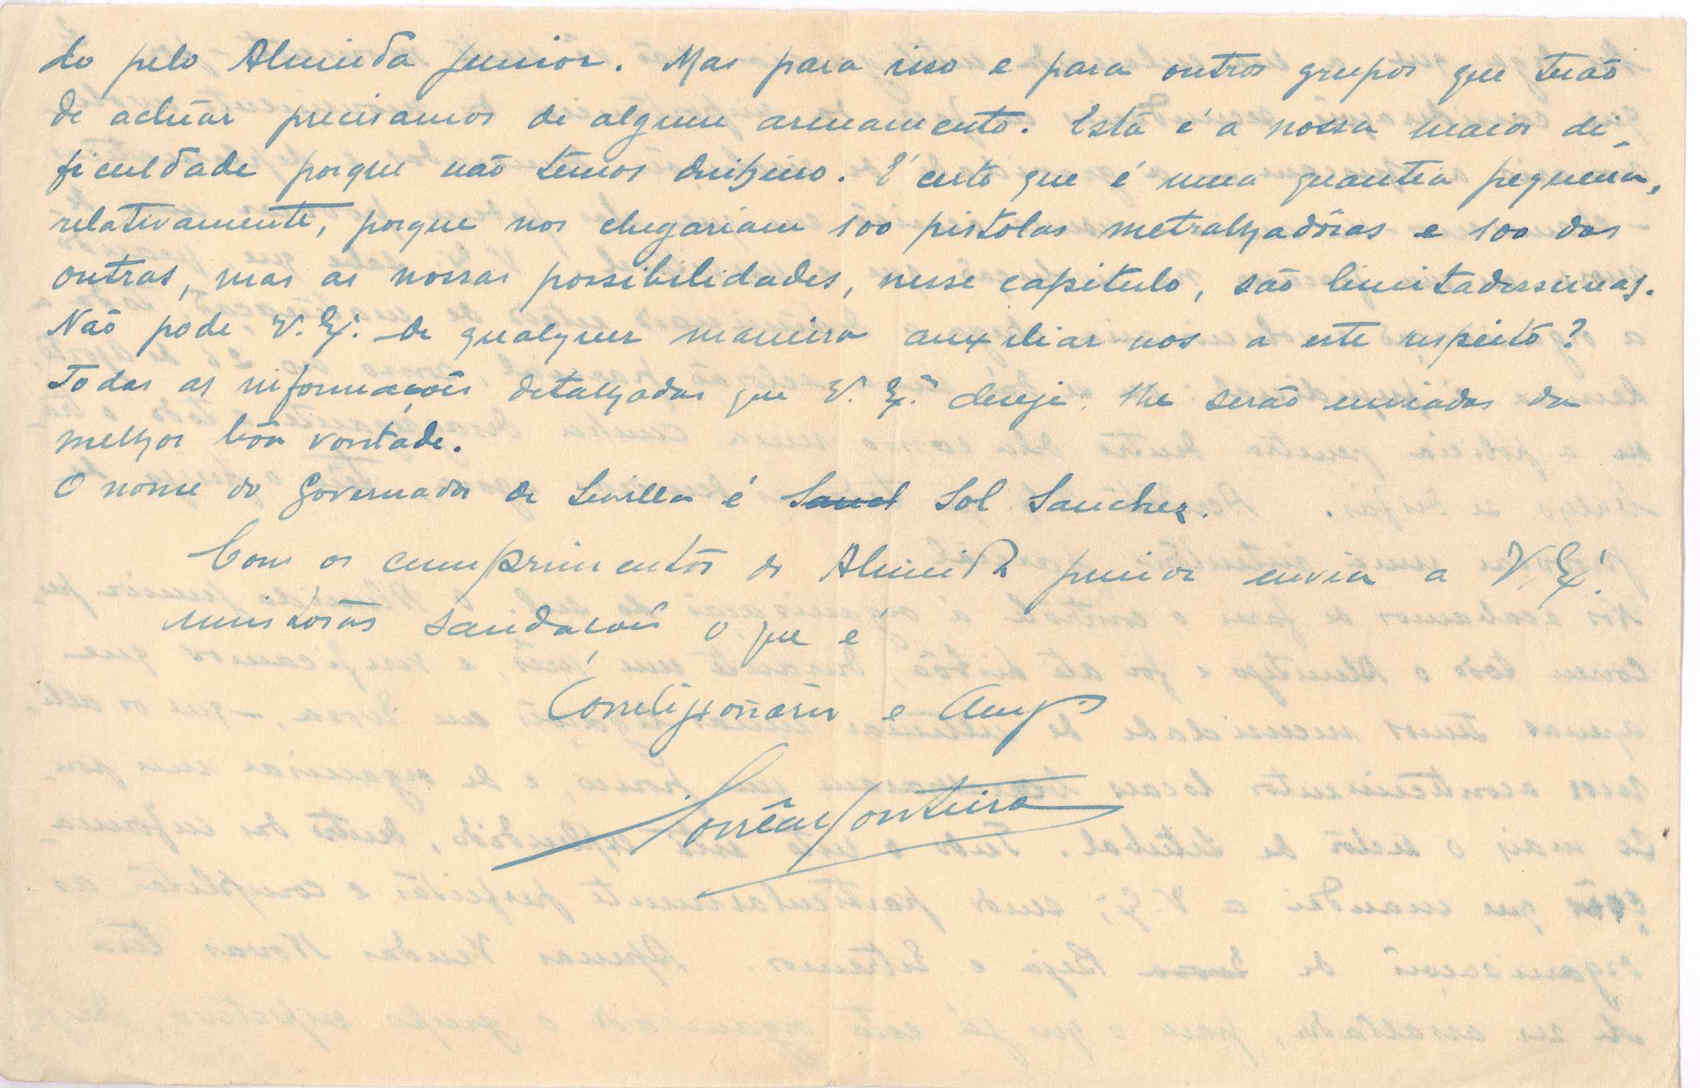 do pelo Almeida Junior. Mas para isso e para outros grupos que terão
de actuar precisamos de algum armamento. Esta é a nossa maior di-
ficuldade porque não temos dinheiro. É certo que é uma quantia pequena,
relativamente, porque nos chegariam 100 pistolas metralhadôras e 100 das
outras, mas as nossas possibilidades, nesse capitulo, são limitadissimas.
Não pode V. Exª. de qualquer maneira auxiliar nos a este respeito?
Todas as informações detalhadas que V. Exª. deseje lhe serão enviadas da
melhor bôa vontade.
O nome do Governador de Sevilla é Sanch Sol Sanchez.
Com os cumprimentos de Almeida Junior envia a V. Exª.
saudações o que é
Correligionário e Amgº